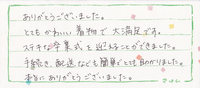 ありがとうございました。
とてもかわいい着物で大満足です。
ステキな卒業式を迎えることができました。
手続き、配送なども簡単でとても助かりました。
本当にありがとうございました。